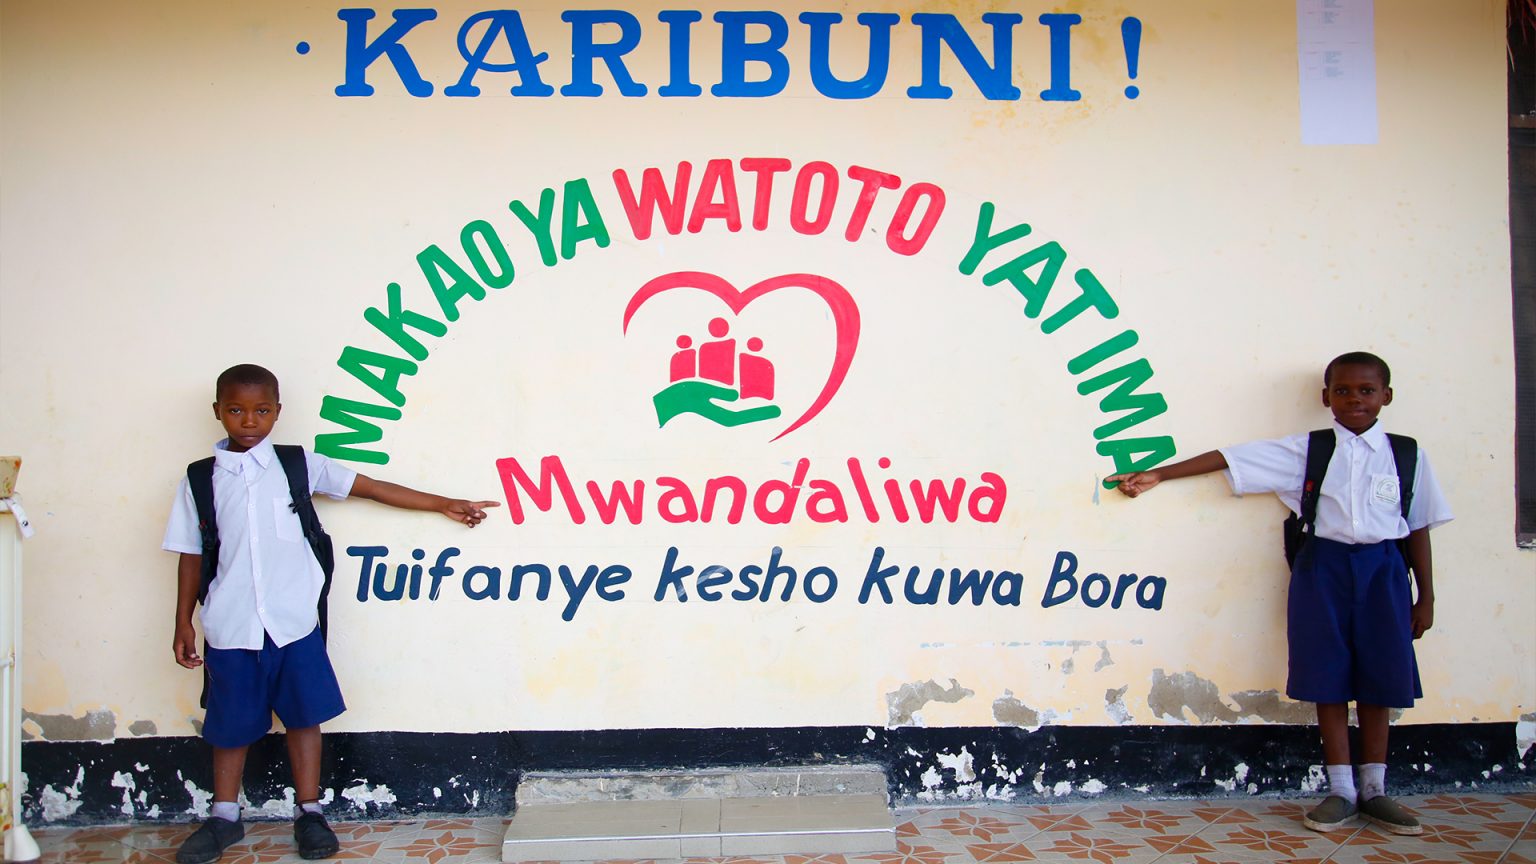 KARIBUNI!
MAKAO YA WATOTO YATIMA
Mwandaliwa
Tuifanye kesho kuwa Bora